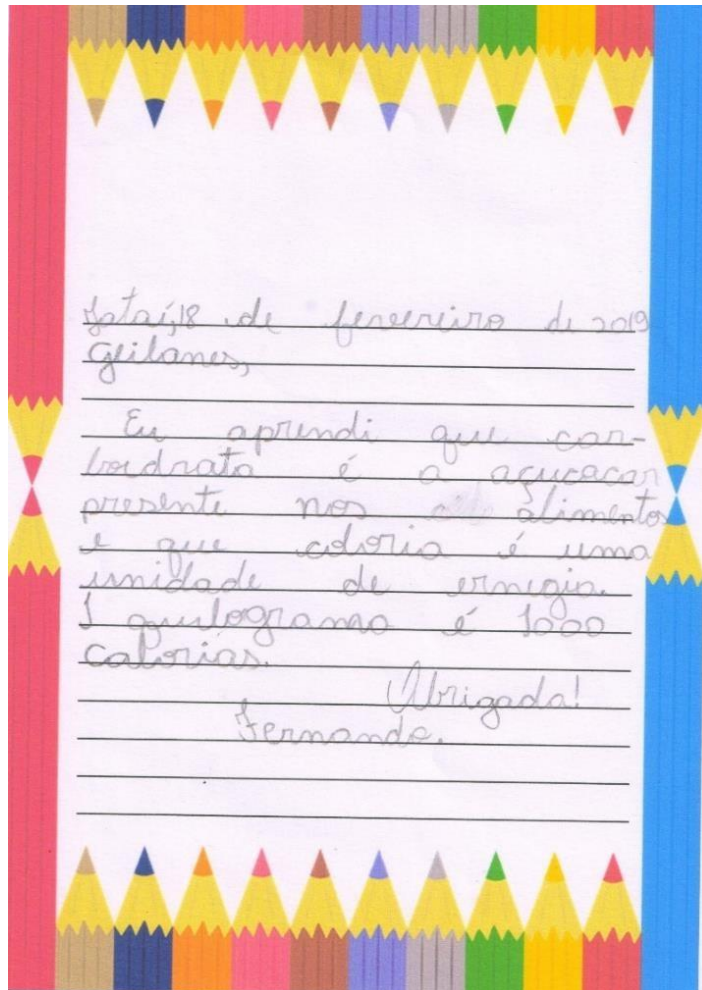 Jataí,18 de fevereiro de 2019
Geilanes,
Eu aprendi que car-
boidrata é a açucacar
presente nos alimentos
e que caloria é uma
unidade de ernegia.
1 quilograma é 1000
calorias.
Obrigada!
Fernanda.